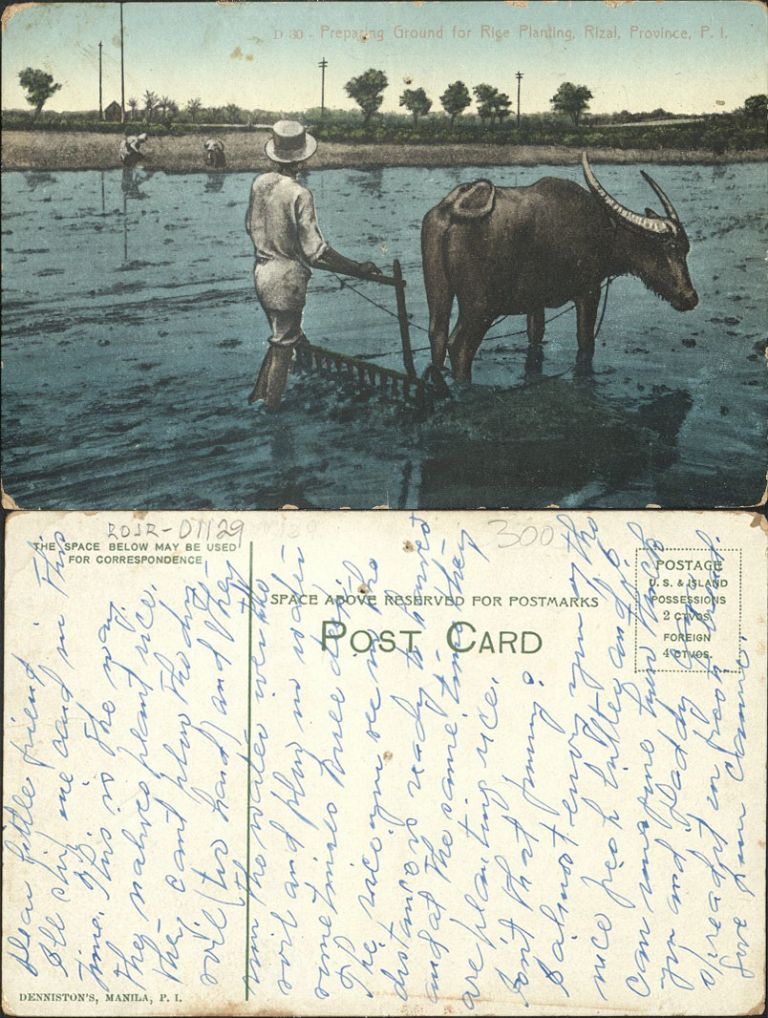 D 30 - Preparing Ground for Rice Planting, Rizal, Province, P. I.
ROJR-01129
300
THE SPACE BELOW MAY BE USED
FOR CORRESPONDENCE
SPACE ABOVE RESERVED FOR POSTMARKS
POST CARD
POSTAGE
U. S. & ISLAND
POSSESSIONS
2 CTVOS.
FOREIGN
4 CTVOS.
Dear little friend
slip one card in this
time. This is the way
the natives plant rice.
They can't plow the dry
soil (too hard) and they
run the water over the
soil and plow in water
sometimes knee deep
The rice you see in the
distance is ready to harvest
and at the same time they
are planting rice.
Isn't that funny?
I almost envy you of the
nice fresh butter and I
can imagine how thick
you and Daddy will
spread it on fresh bread.
Love from
DENNISTON'S, MANILA, P. I.